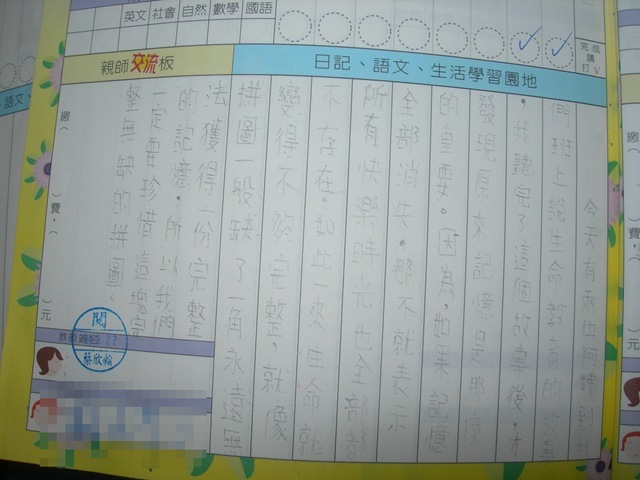 英文 社會 自然 數學 國語
完成請打√
親師交流板
日記、語文、生活學習園地
今天有兩位阿姨到我
們班上說生命教育的故事
。我聽完了這個故事後,才
發現原來記憶是那麼
的重要。因為,如果記憶
全部消失。那不就表示
所有快樂時光也全部都
不存在。如此一來生命就
變得不夠完整。就像
拼圖一般缺了一角永遠無
法獲得一份完整
的記憶。所以我們
一定要珍惜這塊完
整無缺的拼圖。
繳(
)費,(
)元
閱
22
蔡欣翰
語文、
繳(
)費,(
元